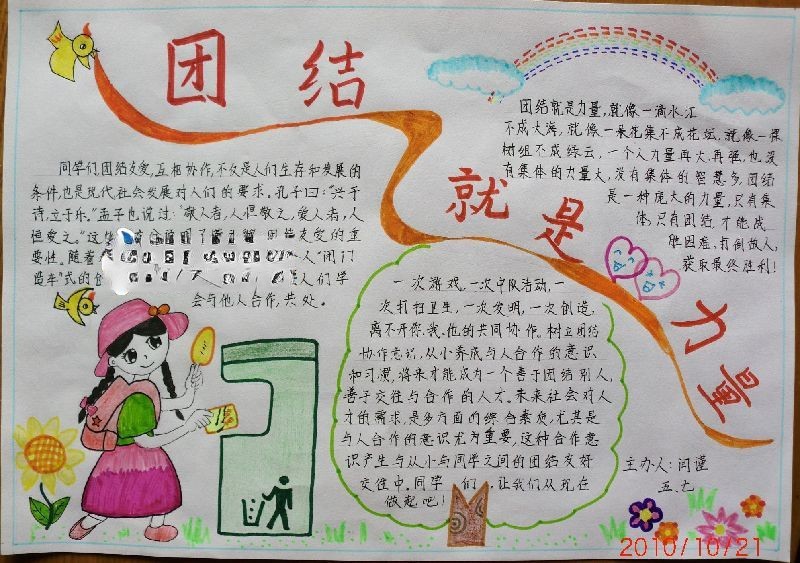 团结
就是
力量
同学们团结友爱,互相协作,不仅是人们生存和发展的
条件,也是现代社会发展对人们的要求。孔子曰:“兴于
诗,立于乐。”孟子也说过:“敬人者,人恒敬之,爱人者,人
恒爱之。”这
友爱的重
要性。随着
人“闭门
造车”式的
们学
会与他人合作,共处。
团结就是力量,就像一滴水汇
不成大海,就像一朵花集不成花坛,就像一棵
树组不成绿云,一个人力量再大,再强,也没
有集体的力量大,没有集体的智慧多,团结
是一种庞大的力量,只有集
体,只有团结,才能战
胜困难,打倒敌人,
获取最终胜利!
一次游戏,一次中队活动,一
次打扫卫生,一次发明,一次创造,
离不开你、我、他的共同协作。树立团结
协作意识,从小养成与人合作的意识
和习惯,将来才能成为一个善于团结别人,
善于交往与合作的人才。未来社会对人
才的需求,是多方面的综合素质,尤其是
与人合作的意识尤为重要,这种合作意
识产生与从小与同学之间的团结友好
交往中。同学们,让我们从现在
做起吧!
主办人:闫谨
五.七
2010/10/21